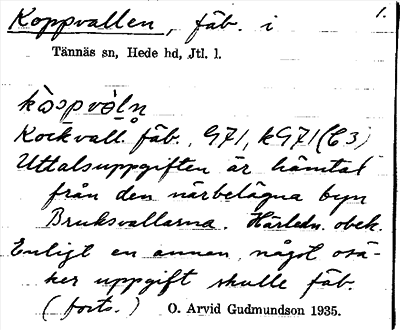 Koppvallen, fäb. i 1.
Tännäs sn, Hede hd, Jtl. l.
Kockvall. fäb., G71, kG71 (C3)
Uttalsuppgiften är hämtat
från den närbelägna byn
Bruksvallarna. Härledn. obek.
Enligt en annan, något osä-
ker uppgift skulle fäb.
(forts.) O. Arvid Gudmundson 1935.